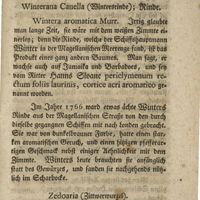 Winterana Canella (Winterrinde); Rinde.
Wintera aromatica Murr. Irrig glaubte
man lange Zeit, sie wäre mit dem weißen Zimmte ei-
nerley; denn die Rinde, welche der Schiffshauptmann
Winter in der Magellanischen Meerenge fand, ist das
Produkt eines ganz andern Baumes. Man sagt, er
wachse auch auf Jamaika und Barbados, und sey
vom Ritter Hanns Sloane periclymenum re-
ctum foliis laurinis, cortice acri aromatico ge-
nannt worden.
Im Jahre 1766 ward etwas ächte Winters
Rinde aus der Magellanischen Straße von den durch
dieselbe gegangenen Schiffen mit nach London gebracht.
Sie war von dunkelbrauner Farbe, hatte einen star-
ken aromatischen Geruch, und einen hitzigen pfefferar-
tigen Geschmack nebst einiger Aehnlichkeit mit dem
Zimmte. Winters leute brauchten sie anfänglich
statt des Gewürzes, und fanden sie nachgehends nütz-
lich im Scharbocke.
Zedoaria (Zittwerwurzel).